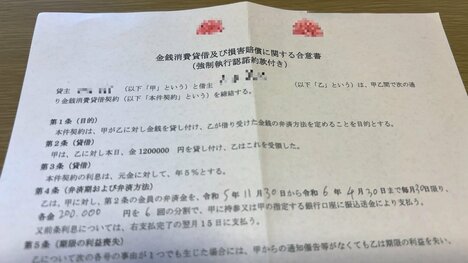 金銭消費貸借及び損害賠償に関する合意書
(強制執行認諾約款付き)
貸主 (以下「甲」という)と借主 (以下「乙」という)は、甲乙間で次の通
り金銭消費貸借契約(以下「本件契約」という)を締結する。
第1条(目的)
本件契約は、甲が乙に対し金銭を貸し付け、乙が借り受けた金銭の弁済方法を定めることを目的とする。
第2条(貸借)
甲は、乙に対し本日、金 1200000 円を貸し付け、乙はこれを受領した。
第3条(貸借)
本件契約の利息は、元金に対して、年5%とする。
第4条(弁済期および弁済方法)
乙は、甲に対し、第2条の金員の弁済金を、令和5年11月30日から令和6年4月30日まで毎月30日限り、
各金200.000円を6回の分割で、甲に持参又は甲の指定する銀行口座に振込送金により支払う。
又前条利息については、右支払完了の翌月15日に支払う。
第5条(期限の利益喪失)
乙について次の各号の事由が1つでも生じた場合には、甲からの通知催告等がなくても乙は期限の利益を失い、